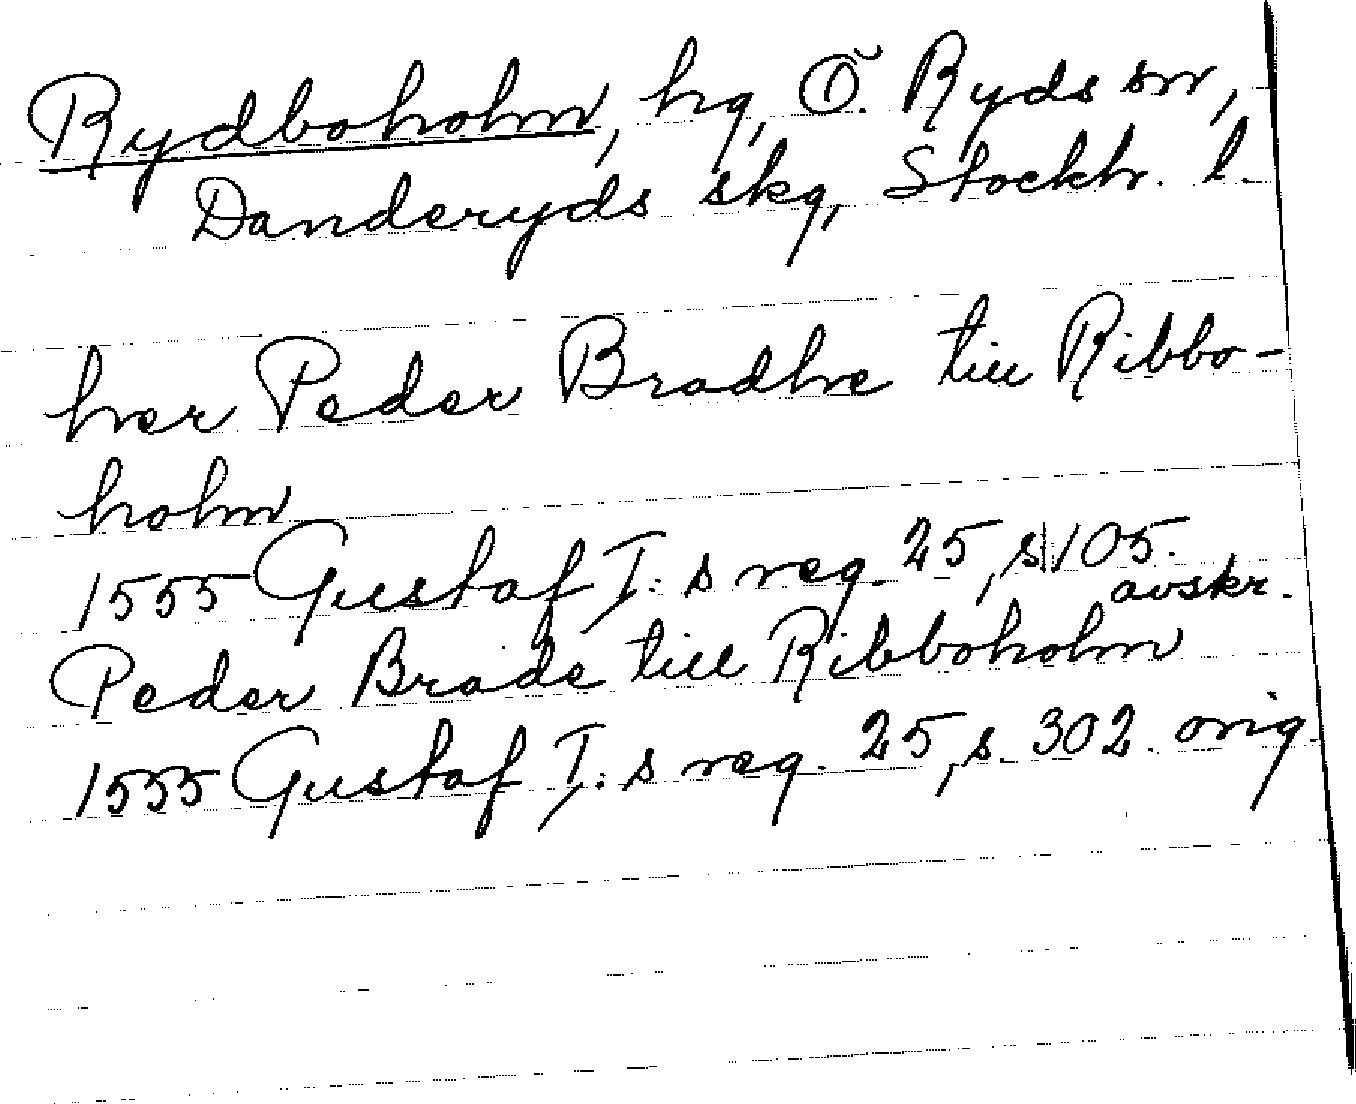 Rydboholm, hg, Ö. Ryds sn,
Danderyds skg, Stockh. l.
her Peder Bradhe till Ribbo-
holm
1555 Gustaf I:s reg. 25, s 105.
avskr.
Peder Brade till Ribboholm
1555 Gustaf I:s reg. 25, s. 302. orig.